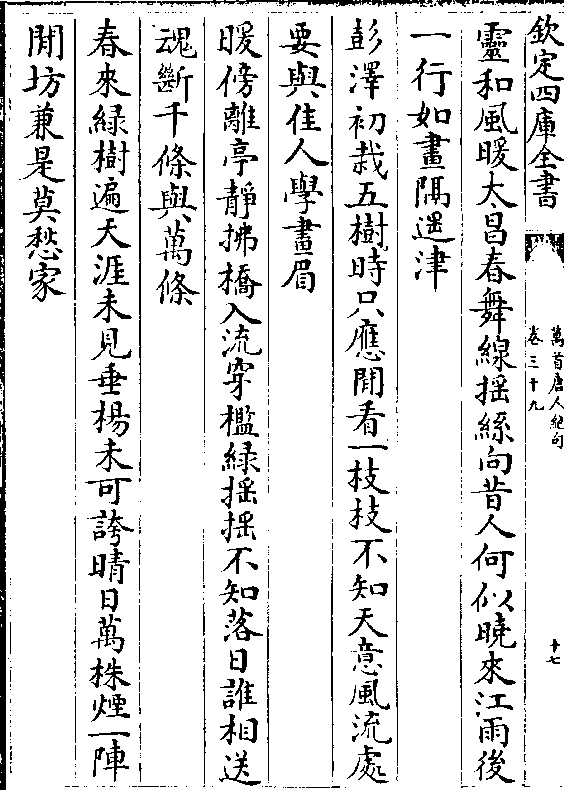 欽定四庫全書
萬首唐人絕句
卷三十九
十七
靈和風暖太昌春舞線揺絲向昔人何似曉來江雨後
一行如畫隔遥津
彭澤初栽五樹時只應閒看一枝枝不知天意風流處
要與佳人學畫眉
暖傍離亭靜拂橋入流穿檻緑揺揺不知落日誰相送
魂斷千條與萬條
春來緑樹遍天涯未見垂楊未可誇晴日萬株煙一陣
閒坊兼是莫愁家